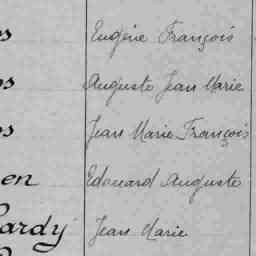 os Eugène François
os Auguste Jean Marie
os Jean Marie François
en Edouard Auguste
ardy Jean Marie